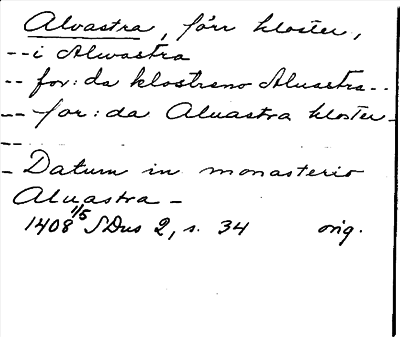 Alvastra, förr kloster,
-- i Alwastra
-- for: da klostreno Aluastra --
-- for: da Aluastra kloster -
--
- Datum in monasterio
Aluastra -
1408 1/5 SDns 2, s. 34 orig.